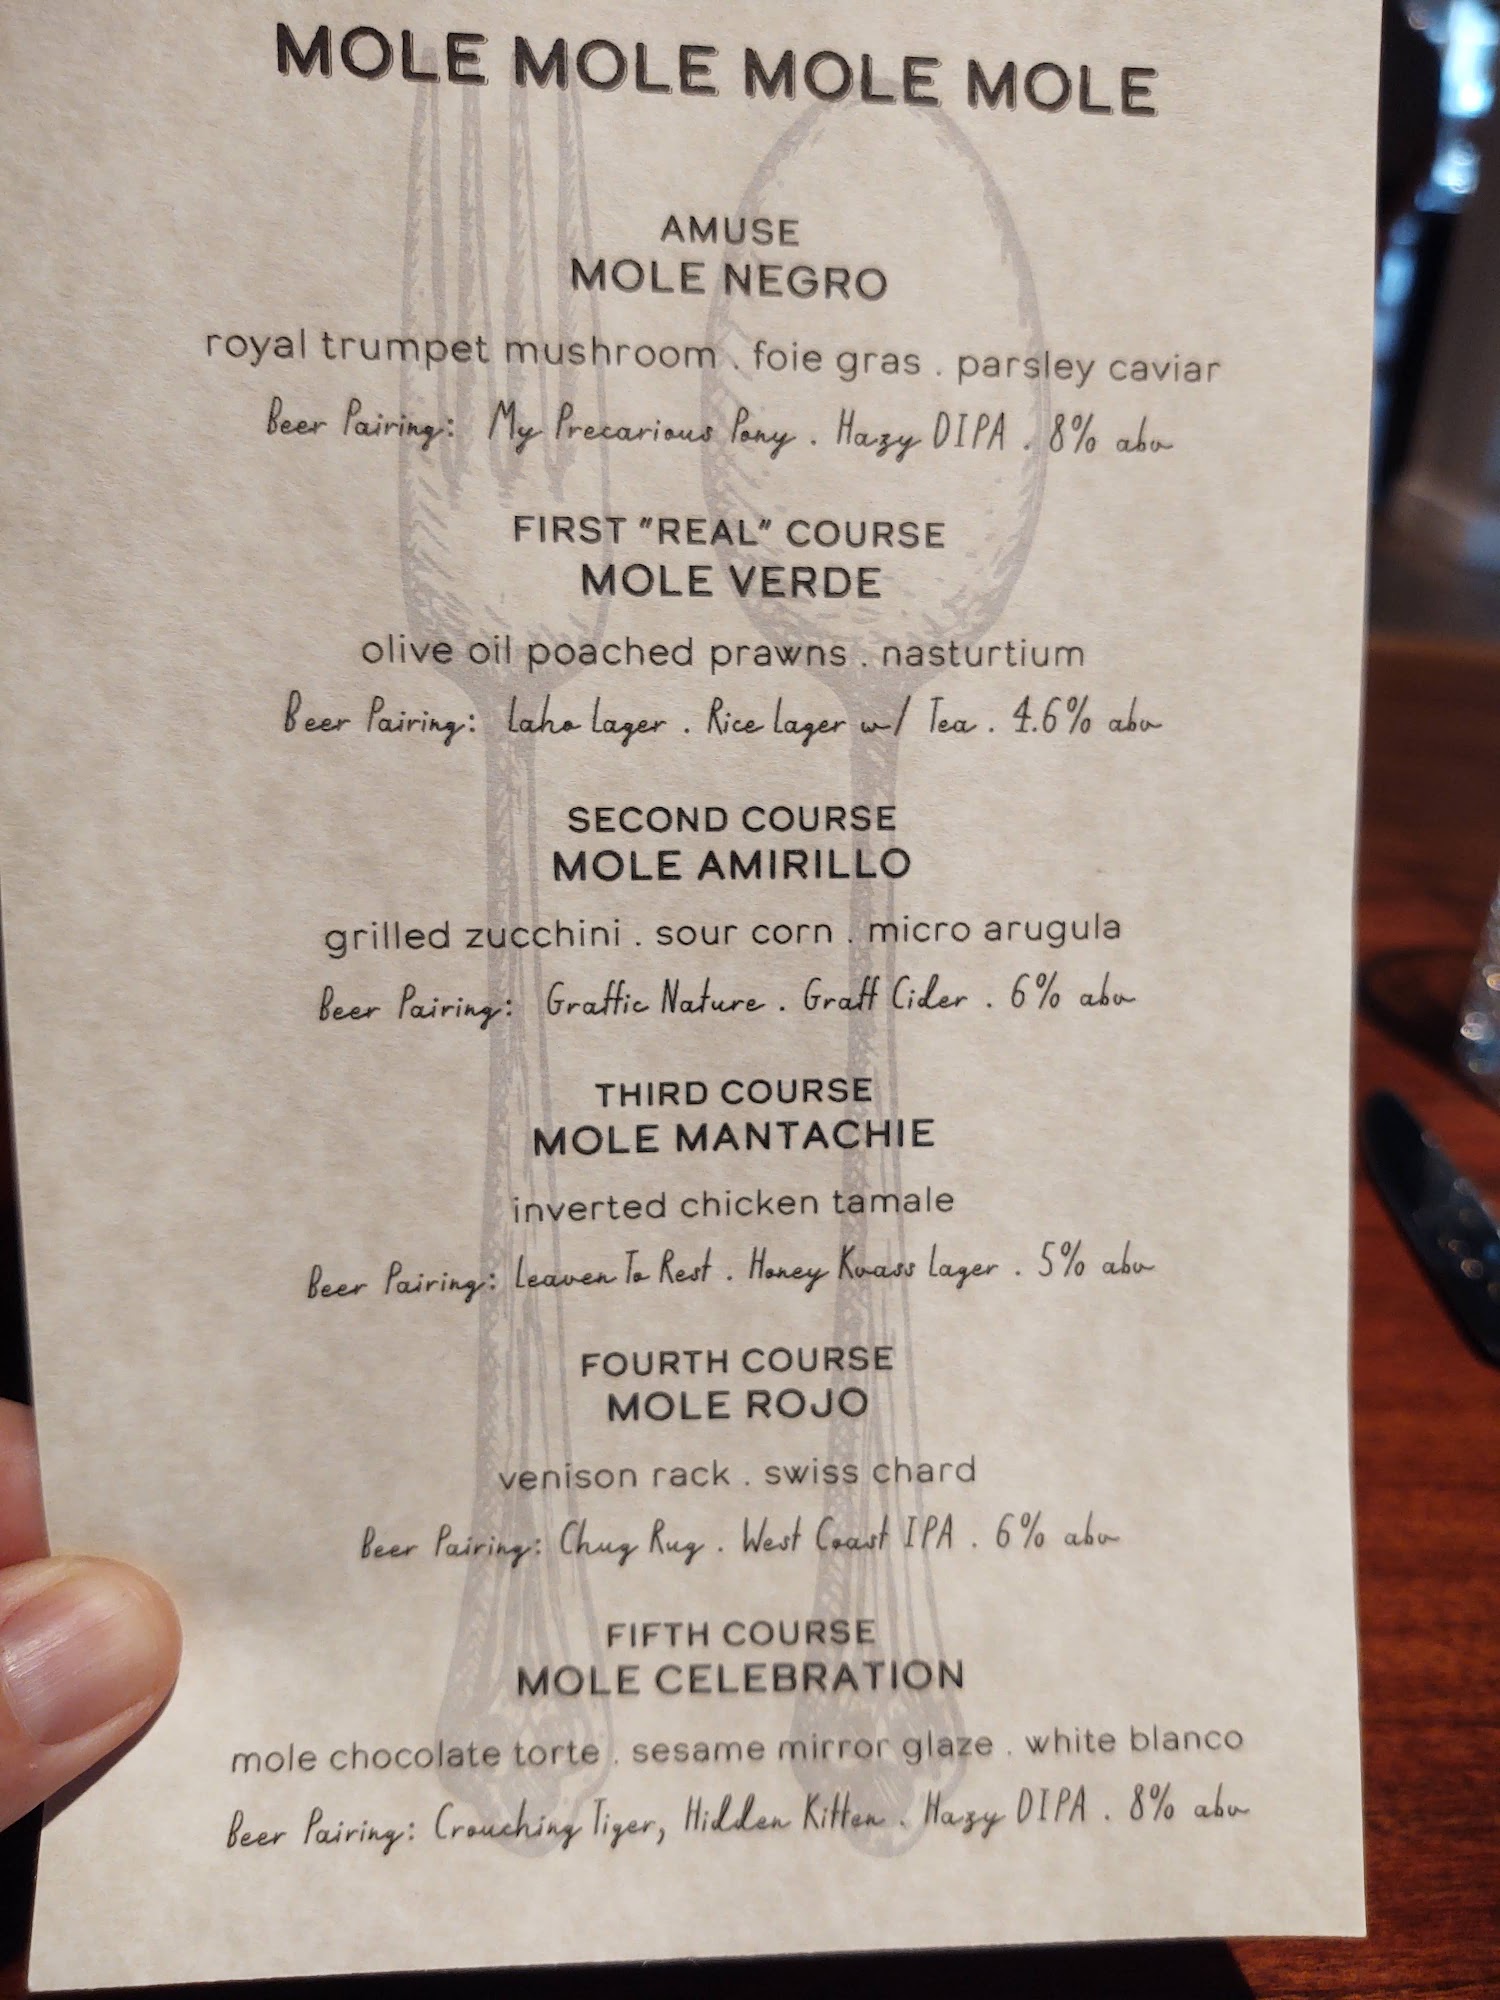 MOLE MOLE MOLE MOLE
AMUSE
MOLE NEGRO
royal trumpet mushroom . foie gras . parsley caviar
Beer Pairing: My Precarious Pony . Hazy DIPA . 8% abv
FIRST "REAL" COURSE
MOLE VERDE
olive oil poached prawns . nasturtium
Beer Pairing: Laho Lager . Rice Lager w/ Tea . 4.6% abv
SECOND COURSE
MOLE AMIRILLO
grilled zucchini . sour corn . micro arugula
Beer Pairing: Graffic Nature . Graff Cider . 6% abv
THIRD COURSE
MOLE MANTACHIE
inverted chicken tamale
Beer Pairing: Leaven To Rest . Honey Kvass Lager . 5% abv
FOURTH COURSE
MOLE ROJO
venison rack . swiss chard
Beer Pairing: Chug Rug . West Coast IPA . 6% abv
FIFTH COURSE
MOLE CELEBRATION
mole chocolate torte . sesame mirror glaze . white blanco
Beer Pairing: Crouching Tiger, Hidden Kitten . Hazy DIPA . 8% abv